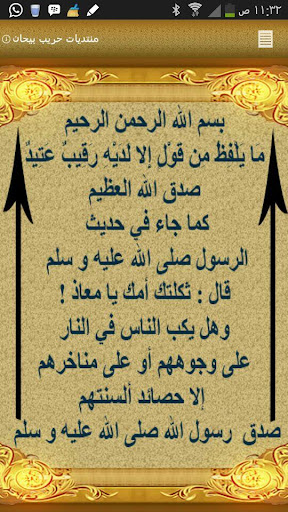 ١١:٣٢ ص
منتديات حريب بيحان
بسم الله الرحمن الرحيم
ما يلفظ من قول إلا لديه رقيب عتيد
صدق الله العظيم
كما جاء في حديث
الرسول صلى الله عليه و سلم
قال : ثكلتك أمك يا معاذ !
وهل يكب الناس في النار
على وجوههم أو على مناخرهم
إلا حصائد ألسنتهم
صدق رسول الله صلى الله عليه و سلم